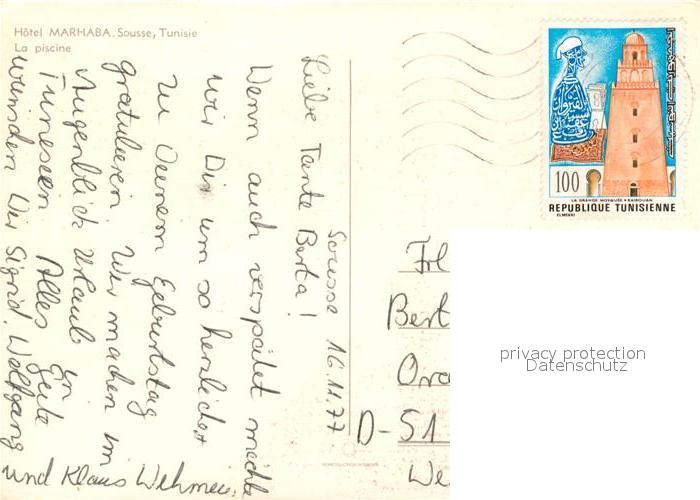 Hôtel MARHABA. Sousse, Tunisie
La piscine
Sousse 16.11.77.
Liebe Tante Berta!
Wenn auch verspätet möchte
wir Dir um so herzlicher
zu Deinem Geburtstag
gratulieren. Wir machen im
Augenblick Urlaub in
Tunesien. Alles Gute
wünschen Dir Sigrid, Wolfgang
und Klaus
100
LA GRANDE MOSQUÉE • KAIROUAN
REPUBLIQUE TUNISIENNE
Frl
Bert
D-51
We
privacy protection
Datenschutz